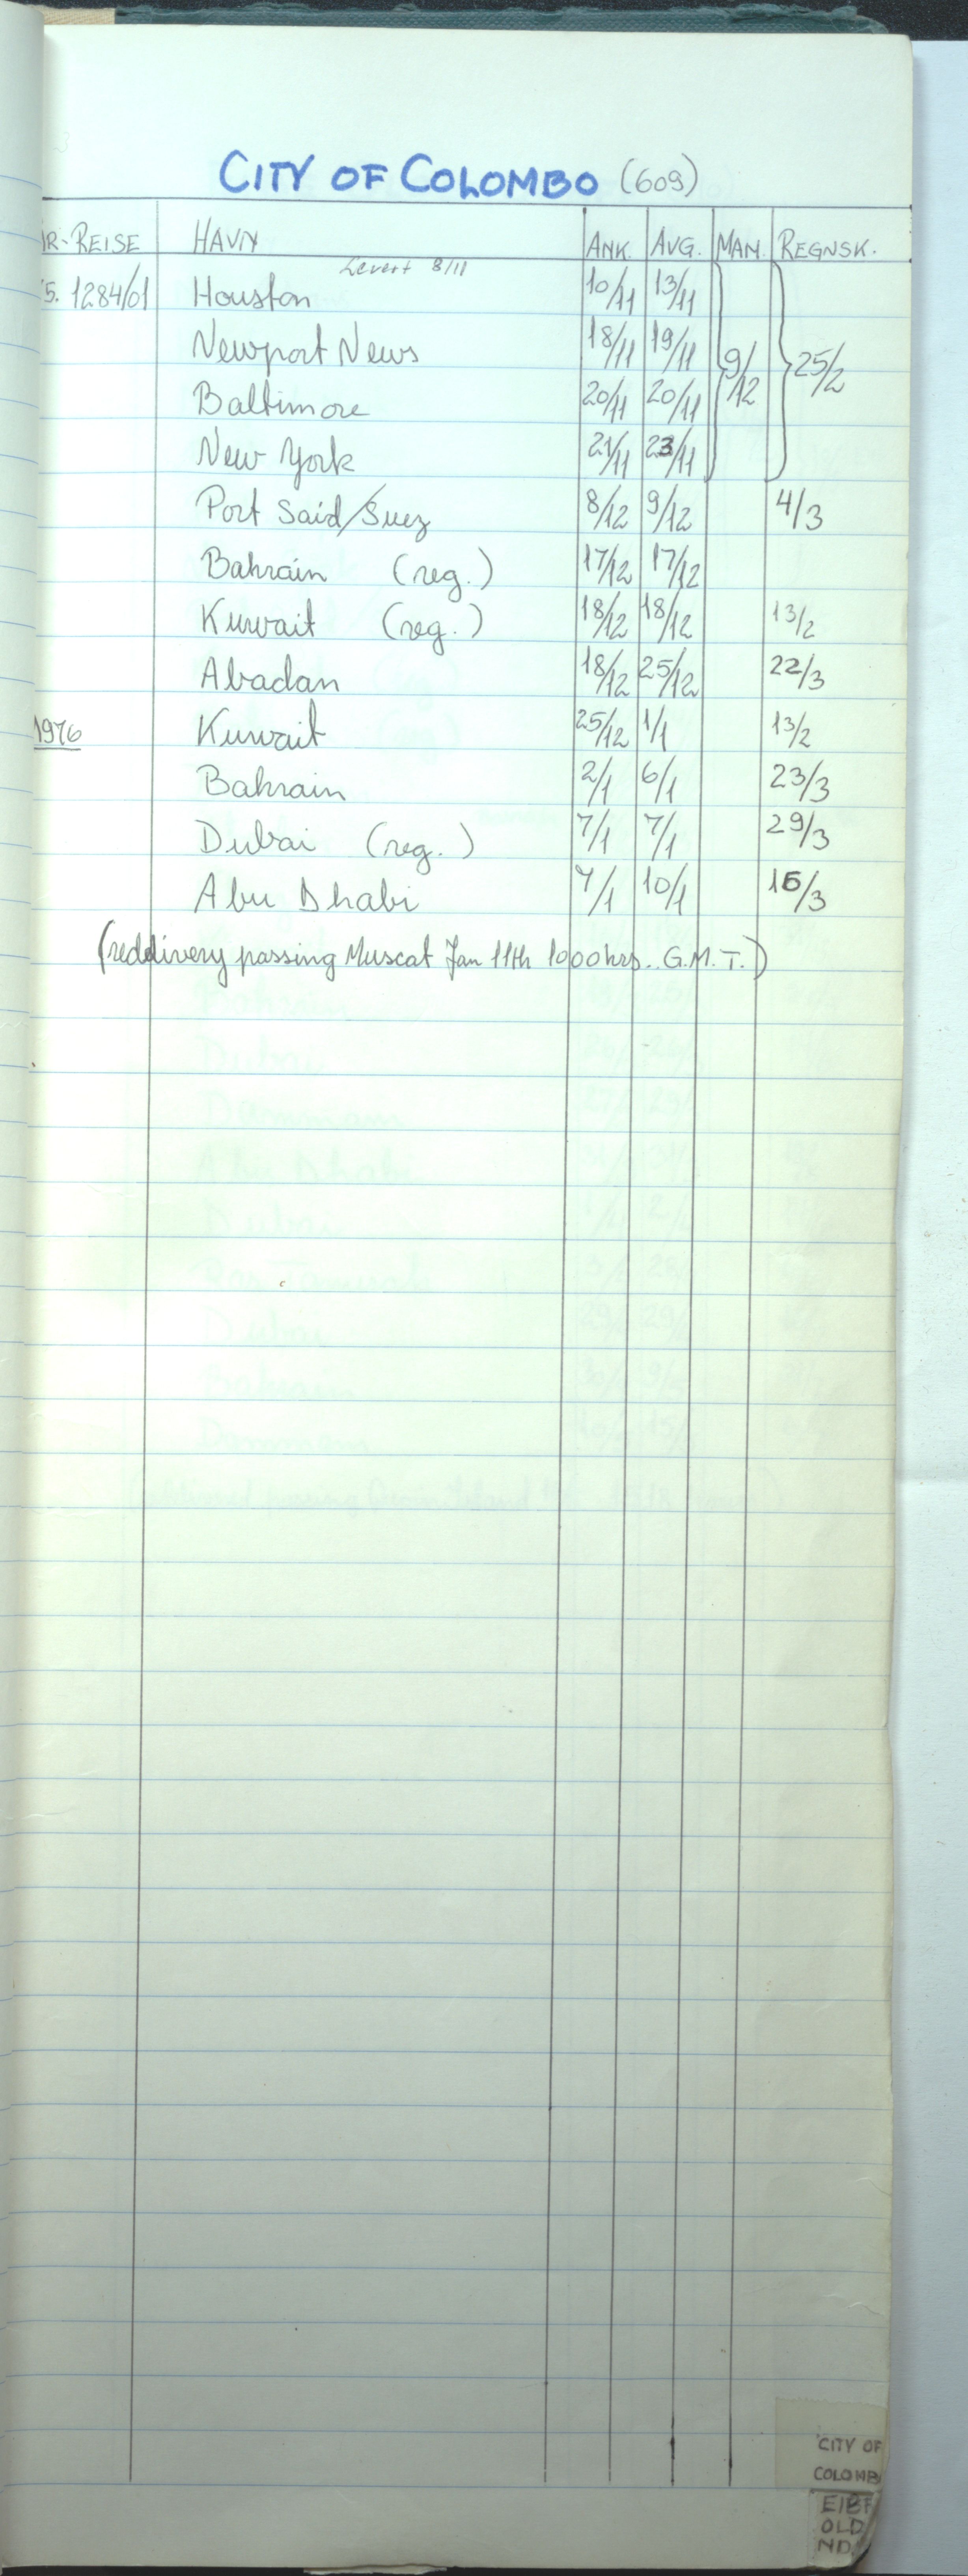 CITY OF COLOMBO (609)
ÅR-REISE HAVN ANK. AVG. MAN. REGNSK.
Levert 8/11
75. 1284/01 Houston 10/11 13/11
Newport News 18/11 19/11 9/12 25/2
Baltimore 20/11 20/11
New York 21/11 23/11
Port Said/Suez 8/12 9/12 4/3
Bahrain (reg.) 17/12 17/12
Kuwait (reg.) 18/12 18/12 13/2
Abadan 18/12 25/12 22/3
1976 Kuwait 25/12 1/1 13/2
Bahrain 2/1 6/1 23/3
Dubai (reg.) 7/1 7/1 29/3
Abu Dhabi 7/1 10/1 16/3
(reddlivery passing Muscat Jan 11th 1000 hrs. G.M.T.)
CITY OF
COLOMB
EIBF
OLD
ND.